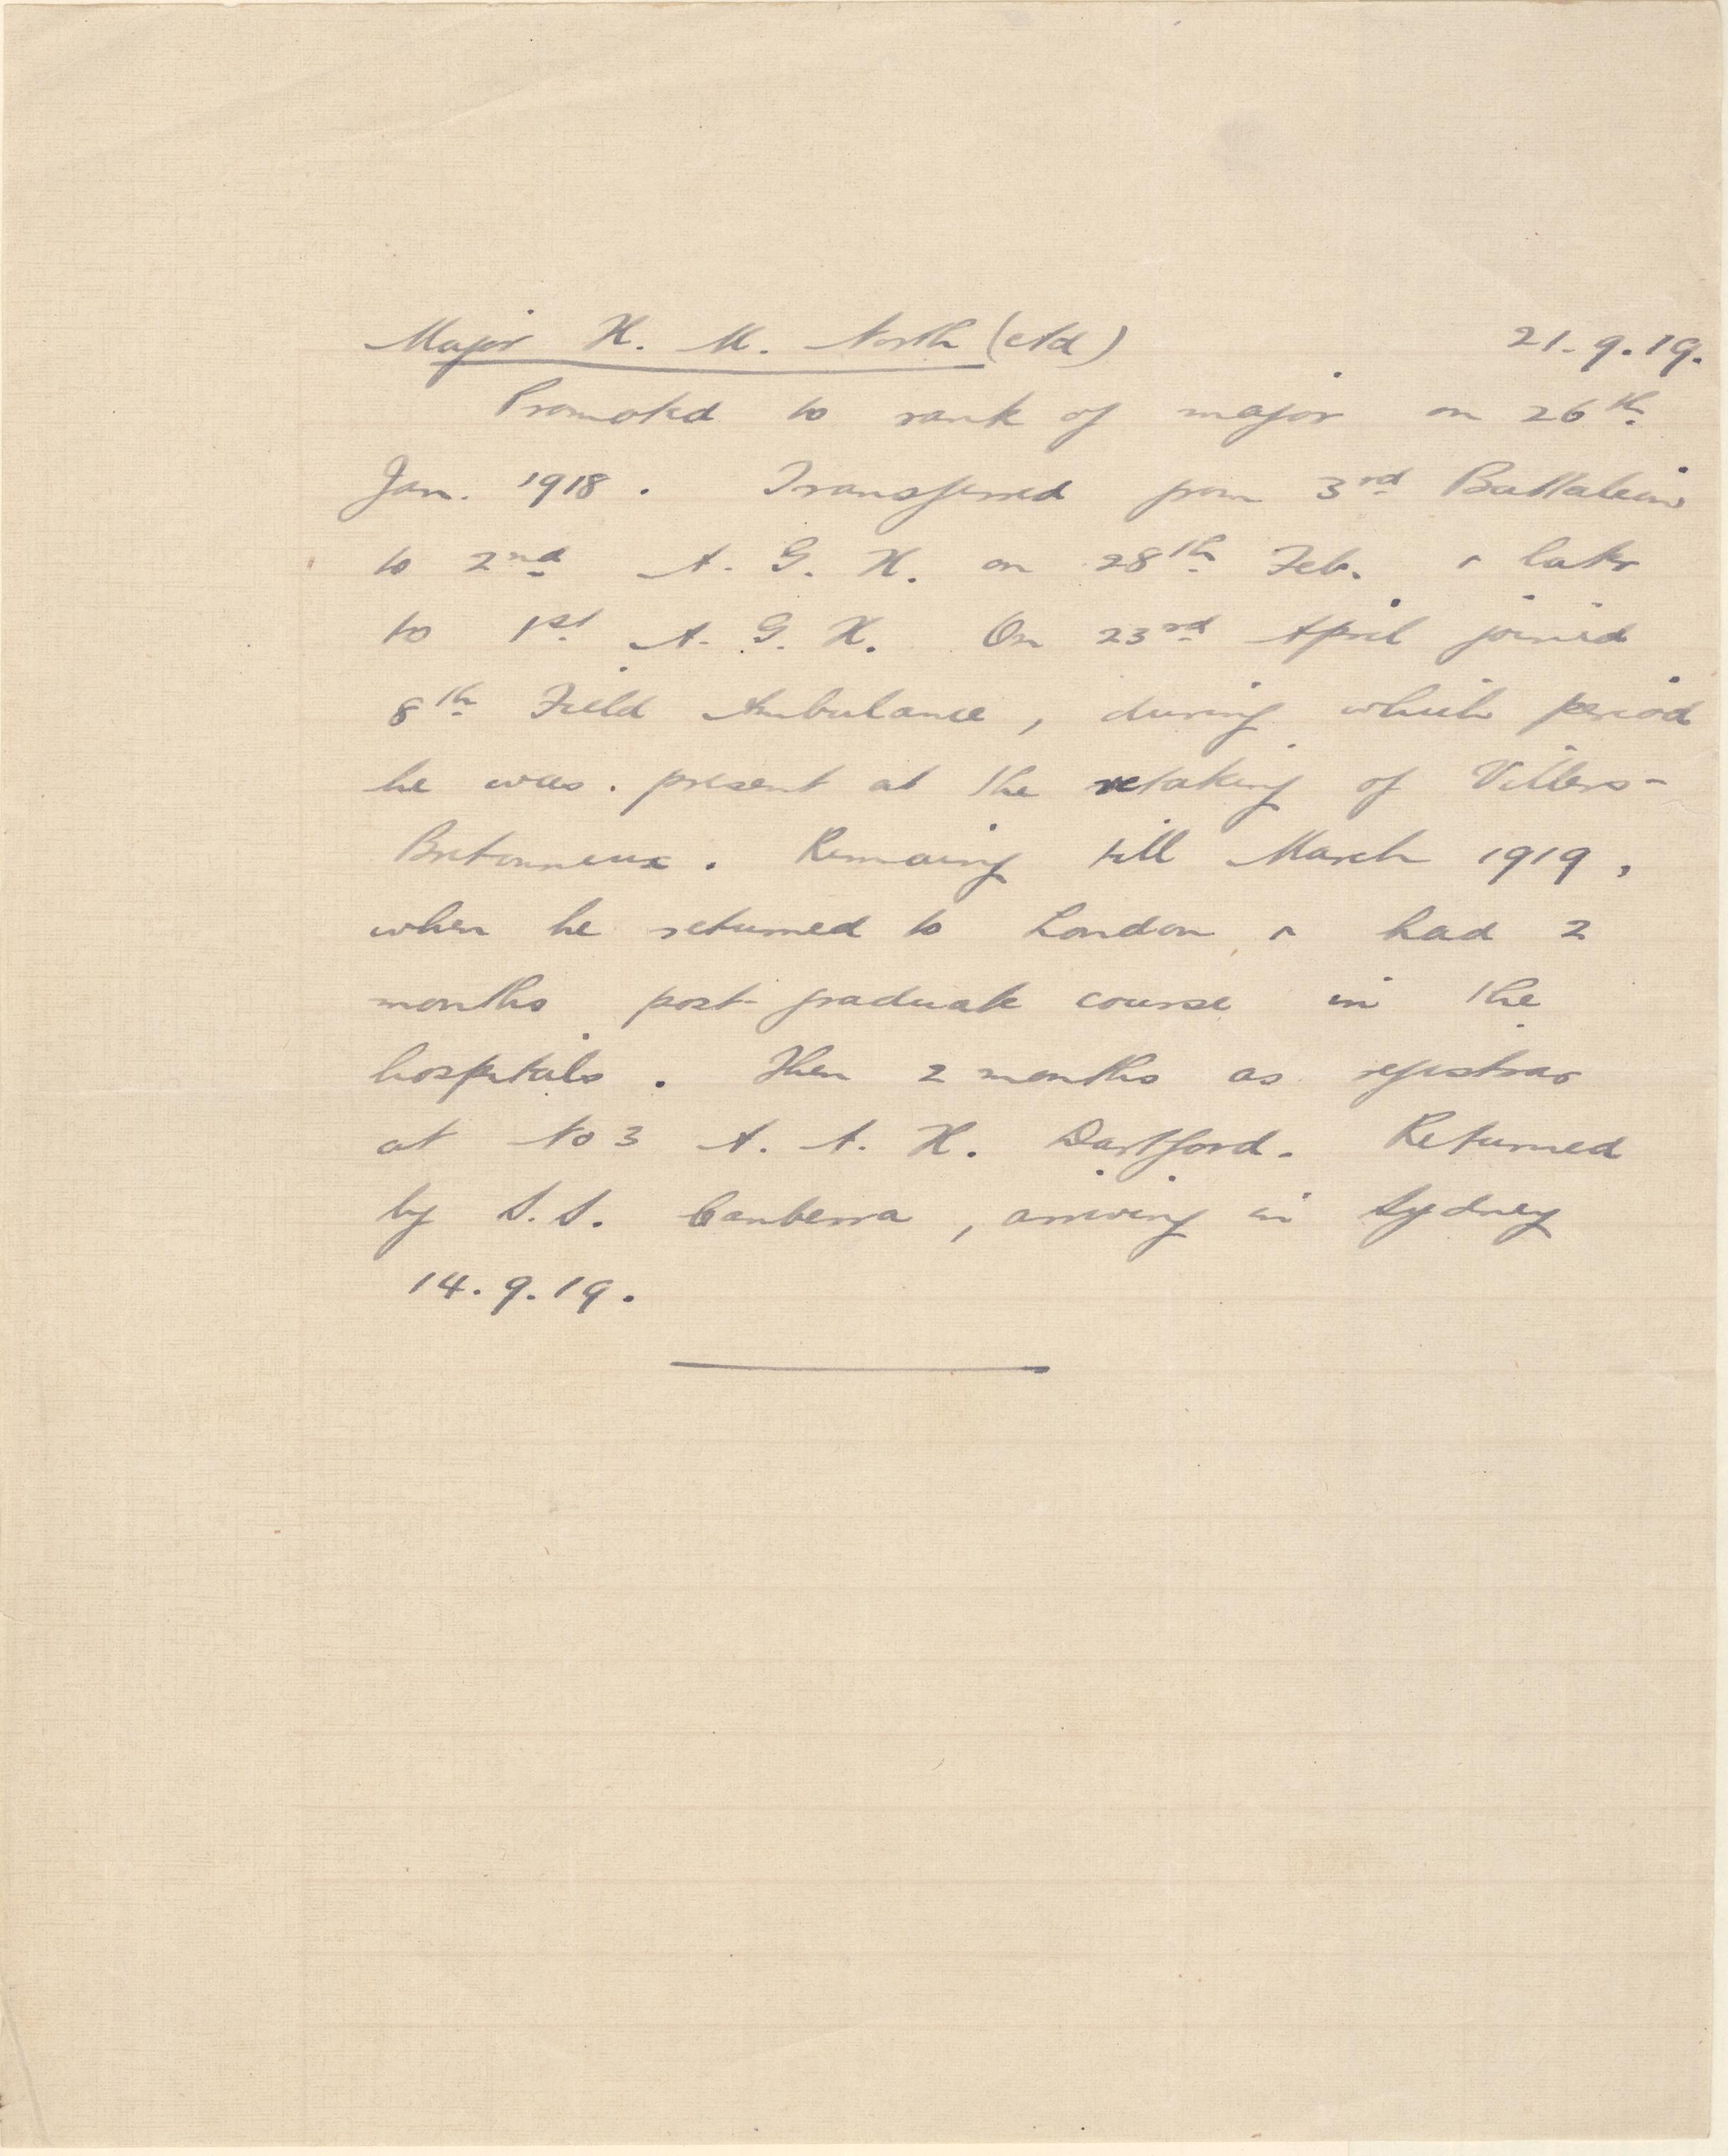 Major H. M. North (ctd) 21.9.19.
Promoted to rank of major on 26th.
Jan. 1918. Transferred from 3rd Battalion
to 2nd A. G. H. on 28th Feb. & later
to 1st A. G. H. On 23rd April joined
8th Field Ambulance, during which period
he was present at the retaking of Villers-
Bretonneux. Remaing till March 1919,
when he returned to London & had 2
months post-graduate course in the
hospitals. Then 2 months as registrar
at No 3 A. A. H. Dartford. Returned
by S.S. Canberra, arriving in Sydney
14.9.19.